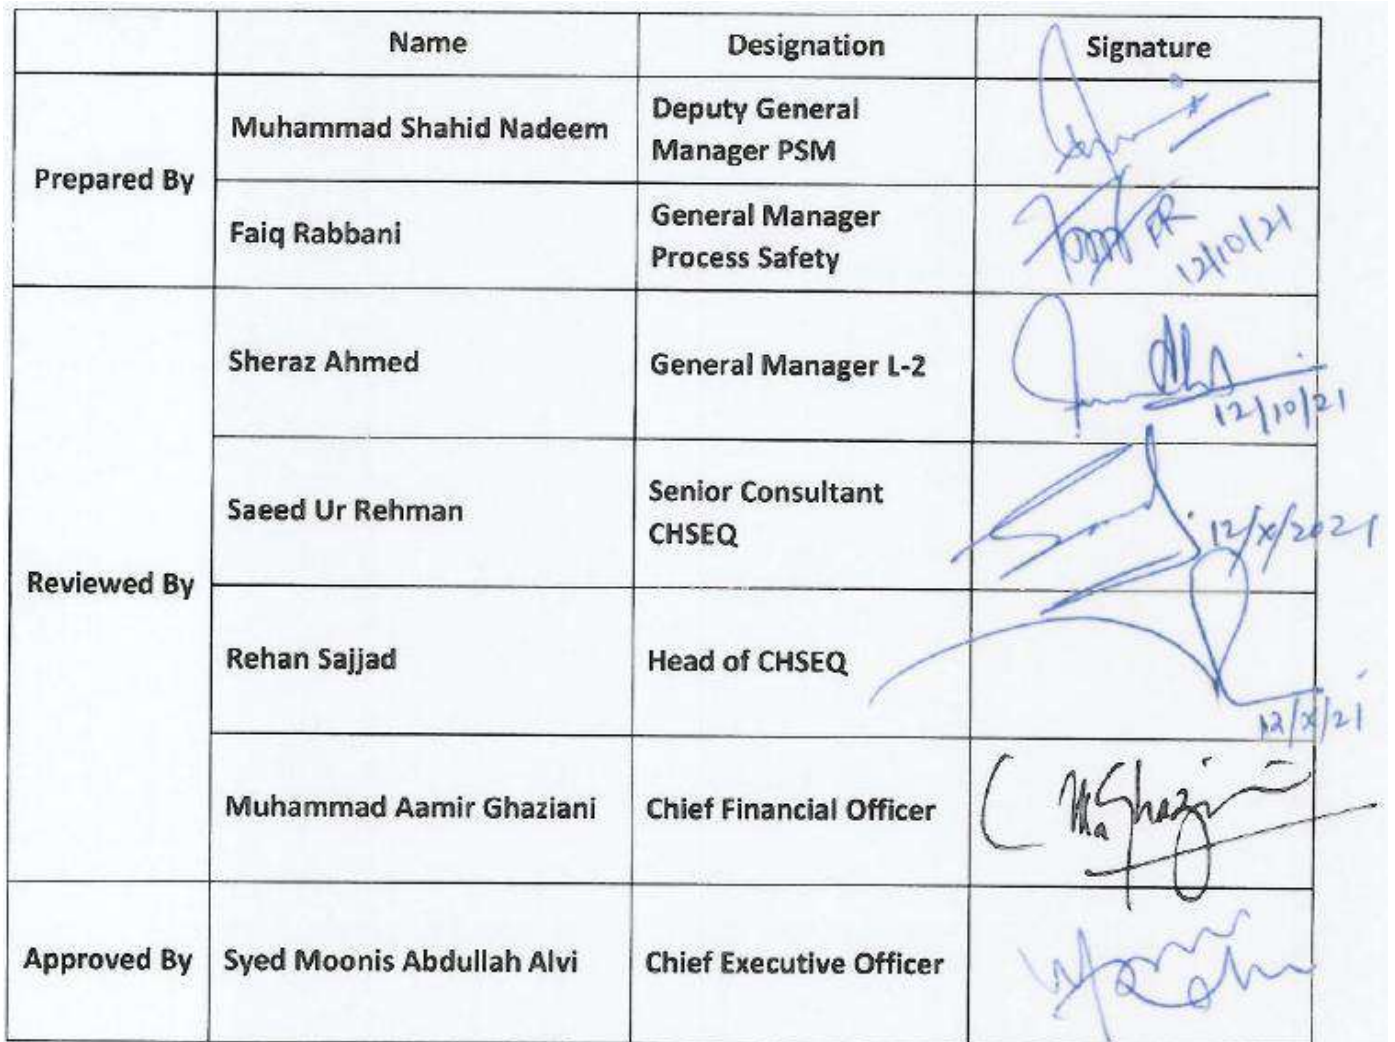 Name Designation Signature
Prepared By
Muhammad Shahid Nadeem
Deputy General
Manager PSM
Faiq Rabbani
General Manager
Process Safety
FR
12/10/21
Reviewed By
Sheraz Ahmed
General Manager L-2
12/10/21
Saeed Ur Rehman
Senior Consultant
CHSEQ
12/X/2021
Rehan Sajjad
Head of CHSEQ
12/X/21
Muhammad Aamir Ghaziani
Chief Financial Officer
Approved By
Syed Moonis Abdullah Alvi
Chief Executive Officer